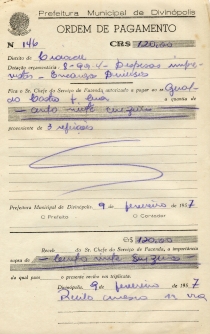 Prefeitura Municipal de Divinópolis
ORDEM DE PAGAMENTO
N. 146 CR$ 120,00
Distrito do Cidade
Dotação orçamentária 8-99-4 - Despesas
Fica o Sr. Chefe do Serviço de Fazenda, autorizado a pagar ao sr.
a quantia de
cento e vinte cruzeiros
proveniente de 3 refeições
Prefeitura Municipal de Divinópolis, 9 de fevereiro de 1957
O Prefeito O Contador
CR$ 120,00
Recebi do Sr. Chefe do Serviço de Fazenda, a importância
supra de cento e vinte cruzeiros
da qual passo o presente recibo em triplicata.
Divinópolis, 9 de fevereiro de 1957